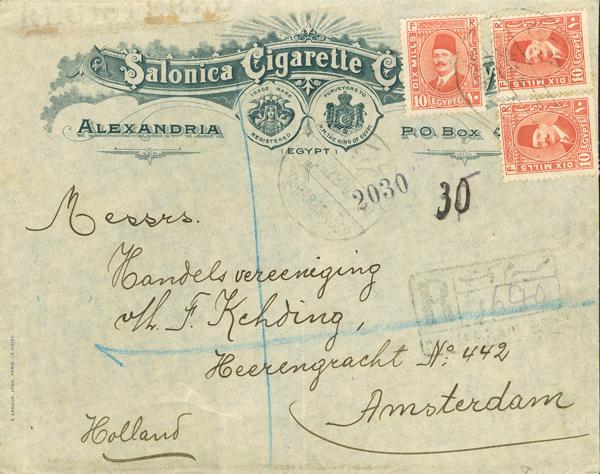 REGISTERED
Salonica Cigarette Co
TRADE MARK
REGISTERED
PURVEYORS TO
H.M. THE KING OF EGYPT
ALEXANDRIA
(EGYPT)
P.O. BOX 4
F R
DIX MILLS
10 EGYPTE ١٠
F R
DIX MILLS
10 EGYPTE ١٠
F
DIX MILLS
10 EGYPTE ١٠
2030
30
Messrs.
Handelsvereeniging
v/h. F. Kehding,
Heerengracht No. 442
Amsterdam
Holland
R